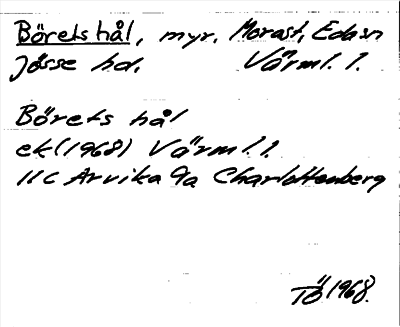 Börets hål, myr, Morast, Eda sn
Jösse hd. Värml. l.
Börets hål
ek (1968) Värml. l.
11c Arvika 9a Charlottenberg
TÖ 1968.